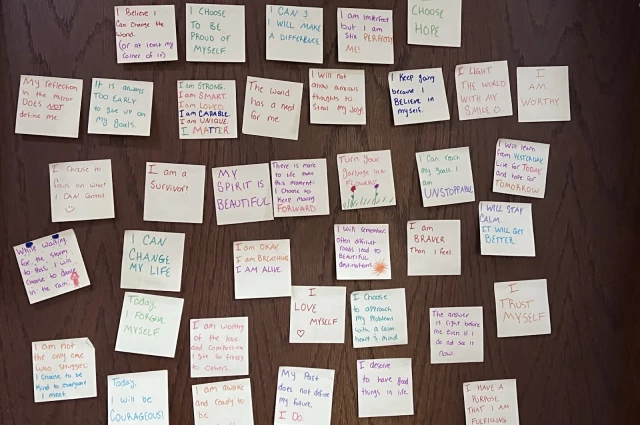 I Believe I
Can Change the
World.
(or at least my
corner of it)
I CHOOSE
TO BE
PROUD OF
MYSELF
I CAN &
I WILL MAKE
A DIFFERENCE
I am imperfect
but I am
still PERFECTLY
ME!
CHOOSE
HOPE
My reflection
in the mirror
DOES NOT
define me.
It is always
TOO EARLY
to give up on
my goals.
I am STRONG.
I am SMART.
I am LOVED.
I am CAPABLE.
I am UNIQUE.
I MATTER
The world
has a need
for me.
I will not
allow anxious
thoughts to
steal my joy!
I keep going
because I
BELIEVE in
myself.
I LIGHT
THE WORLD
WITH MY
SMILE
I AM
WORTHY
I choose to
focus on what
I CAN control
I am a
Survivor!
MY
SPIRIT IS
BEAUTIFUL
There is more
to life than
this moment.
I choose to
keep moving
FORWARD
Turn your
garbage into
FLOWERS
I can reach
my goals. I
am
UNSTOPPABLE
I will learn
from YESTERDAY
Live for TODAY
and hope for
TOMORROW
While waiting
for the storm
to pass, I will
choose to dance
in the rain
I CAN
CHANGE
MY LIFE
I am OKAY
I am BREATHING
I AM ALIVE.
I will remember
often difficult
roads lead to
BEAUTIFUL
destinations.
I am
BRAVER
Than I feel.
I WILL STAY
CALM.
IT WILL GET
BETTER.
Today,
I FORGIVE
MYSELF
I am worthy
of the love
and compassion
I give so freely
to others.
I
LOVE
MYSELF
I choose
to approach
my problems
with a calm
heart & mind
The answer
is right before
me even if I
do not see it
now.
I
TRUST
MYSELF
I am not
the only one
who struggles.
I choose to be
kind to everyone
I meet.
Today,
I will be
COURAGEOUS!
I am awake
and ready to
be
My Past
does not define
my future,
I DO.
I deserve
to have good
things in life.
I HAVE A
PURPOSE
THAT I AM
FULFILLING